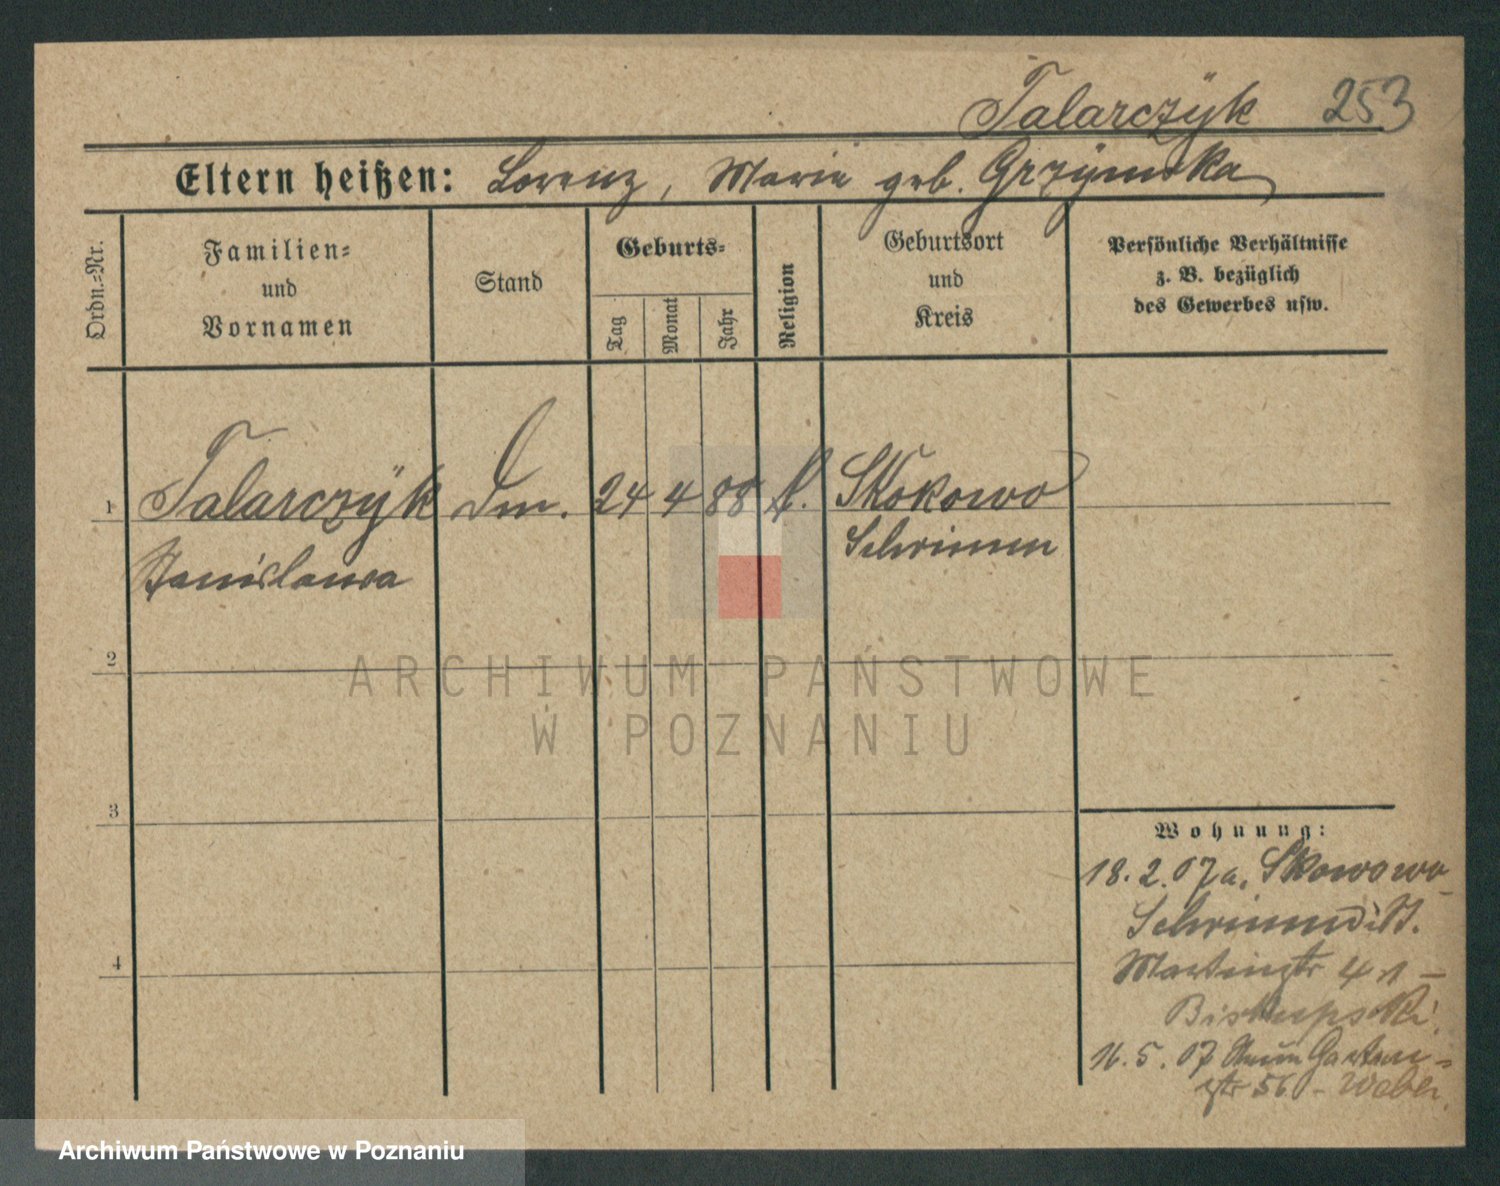 Talarczÿk 253
Eltern heißen: Lorenz, Marie geb. Grzÿmska
Ordn.=Nr.
Familien=
und
Vornamen
Stand
Geburts=
Tag
Monat
Jahr
Religion
Geburtsort
und
Kreis
Persönliche Verhältnisse
z. B. bezüglich
des Gewerbes usw.
1 Talarczÿk Dm. 24 4 88 k. Skokowo
Stanislawa Schrimm
2
3
4
Wohnung:
18.2.07 a. Skowowo
Schrimm
Martinstr 41 –
Biskupski
16.5.07 Garten=
str 56 – Weber
ARCHIWUM PAŃSTWOWE
W POZNANIU
Archiwum Państwowe w Poznaniu